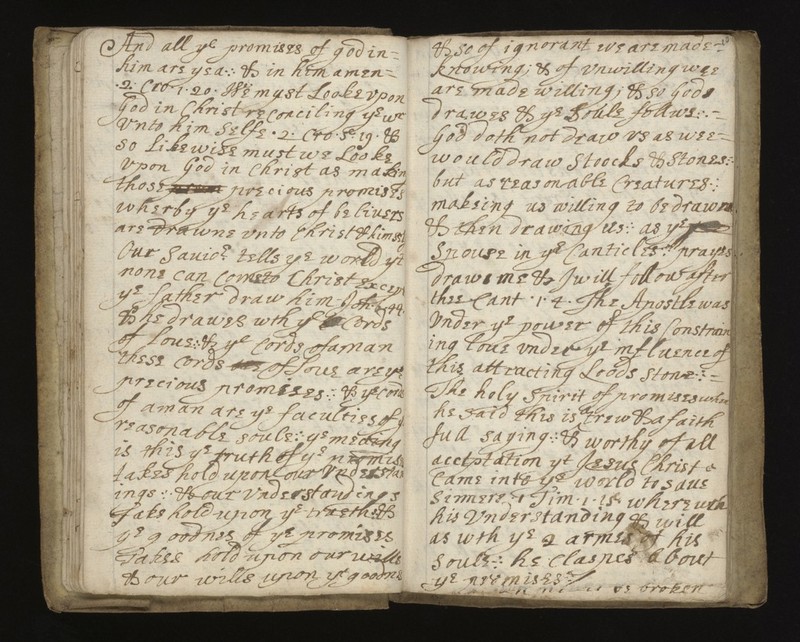 And all yᵉ promises of god in=
him are yea:: & in him amen=
·2· Cro·1·20· We must Looke vpon
God in Christ reconciling yᵉ wr
Vnto him Selfe·2·Cro·5·19·&
so Likewise must we Looke
vpon God in Christ as making
those precious promises
wherby yᵉ hearts of belivers
are drawne vnto Christ & himself
Our Savioʳ tells yᵉ world yᵗ
none can come to Christ Except
yᵉ father draw him Joh 44
& he drawes wth yᵉ Cords
of Loue:& yᵉ Cords of a man
these Cords of Loue are yᵉ
precious promises:: & yᵉ Cords
of a man are yᵉ faculties of yᵉ
reasonable soule:: yᵉ meaning
is this yᵉ truth of yᵉ promis
takes hold upon our Understan
ings:: & our Vnderstandings
take hold upon yᵉ trueth &
yᵉ goodnes of yᵉ promises
takes hold upon our wills
& our wills upon yᵉ goodne
& so of ignorant we are made=
knowing; & of Vnwilling wee
are made willing; & so God
drawes & yᵉ Soule follows:=
God doth not draw vs as wee=
would draw Stocks & Stones::
but as reasonable Creatures::
makeing us willing to be drawne
& then drawing us:: as yᵉ
Spouse in yᵉ Canticles:: prayes
draw me & I will follow after
thee Cant·1·4· The Apostle was
Vnder yᵉ power of this Constrain
ing Loue vnder yᵉ influence of
this attracting Loods Stone::=
The holy Spirit of promises when
he said this is a trew & a faith
full saying:& worthy of all
acceptation yt Jesus Christ
Came into yᵉ world to saue
Sinners·1 Tim·1·15· where wth
his Understanding & will
as wth yᵉ 2 armes of his
soule:: he Claspes about
yᵉ promises::
broken